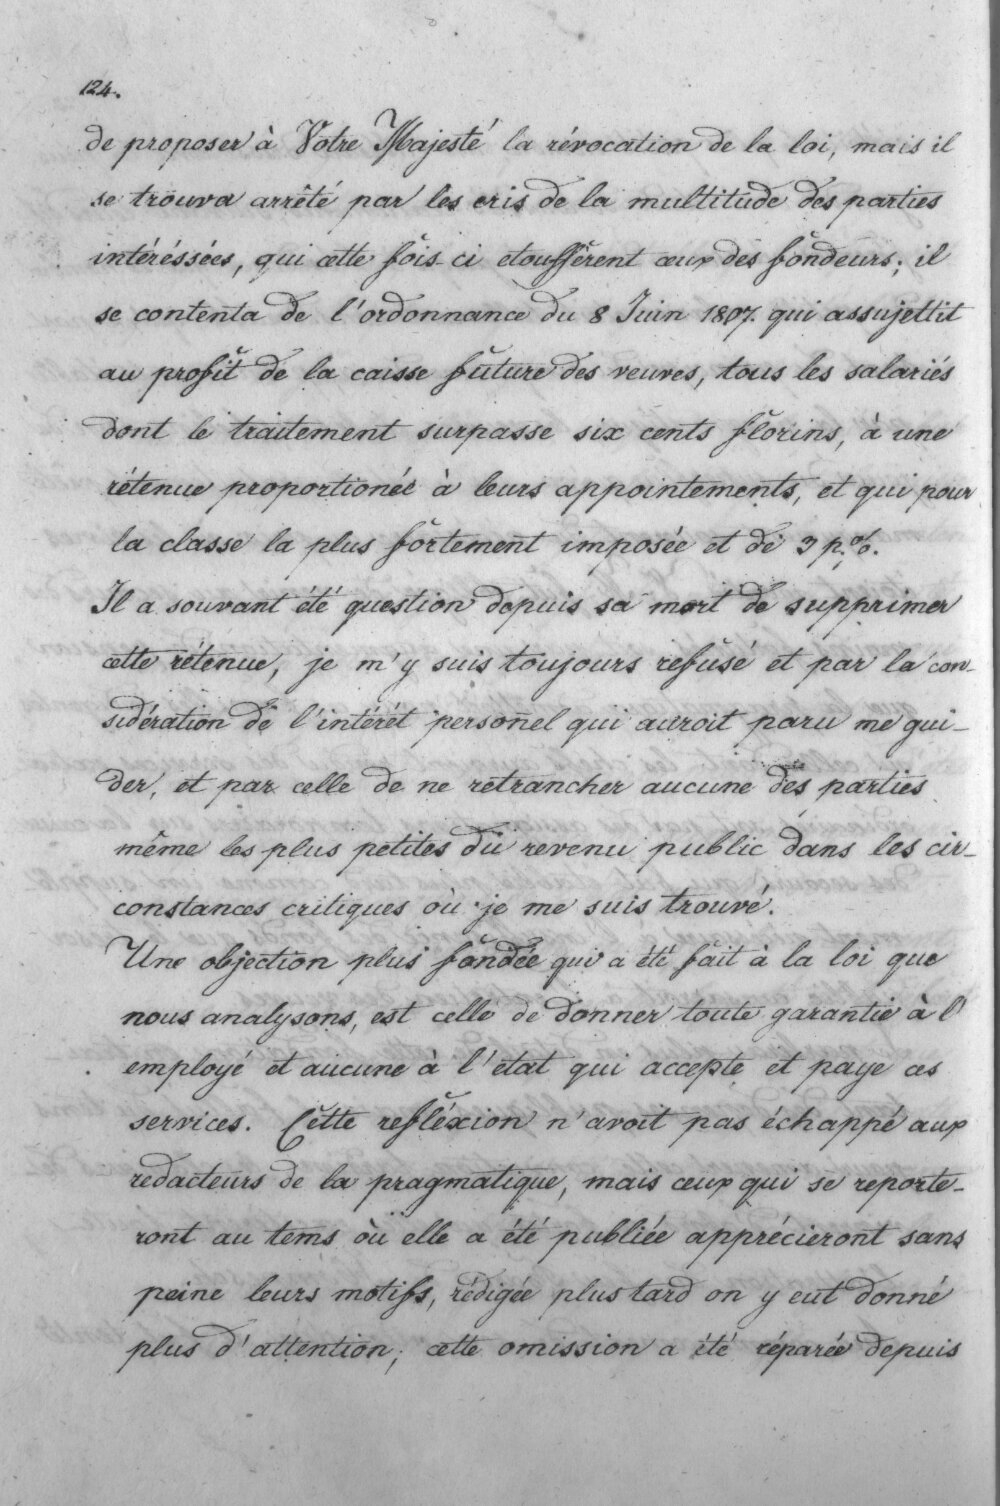 124.
de proposer à Votre Majesté la révocation de la loi, mais il
se trouva arrêté par les cris de la multitude des parties
intéréssées, qui cette fois-ci etouffèrent ceux des fondeurs; il
se contenta de l'ordonnance du 8 Juin 1807. qui assujettit
au profit de la caisse future des veuves, tous les salariés
dont le traitement surpasse six cents florins, à une
rétenue proportionée à leurs appointements, et qui pour
la classe la plus fortement imposée et de 3 p.%.
Il a souvant été question depuis sa mort de supprimer
cette rétenue, je m'y suis toujours refusé et par la con-
sidération de l'intérét personel qui auroit paru me gui-
der, et par celle de ne retrancher aucune des parties
même les plus petites du revenu public dans les cir-
constances critiques où je me suis trouvé.
Une objection plus fondée qui a été fait à la loi que
nous analysons, est celle de donner toute garantie à l'
employé et aucune à l'etat qui accepte et paye ces
services. Cette refléxion n'avoit pas échappé aux
redacteurs de la pragmatique, mais ceux qui se reporte-
ront au tems où elle a été publiée apprécieront sans
peine leurs motifs, rédigée plus tard on y eut donné
plus d'attention; cette omission a été réparée depuis